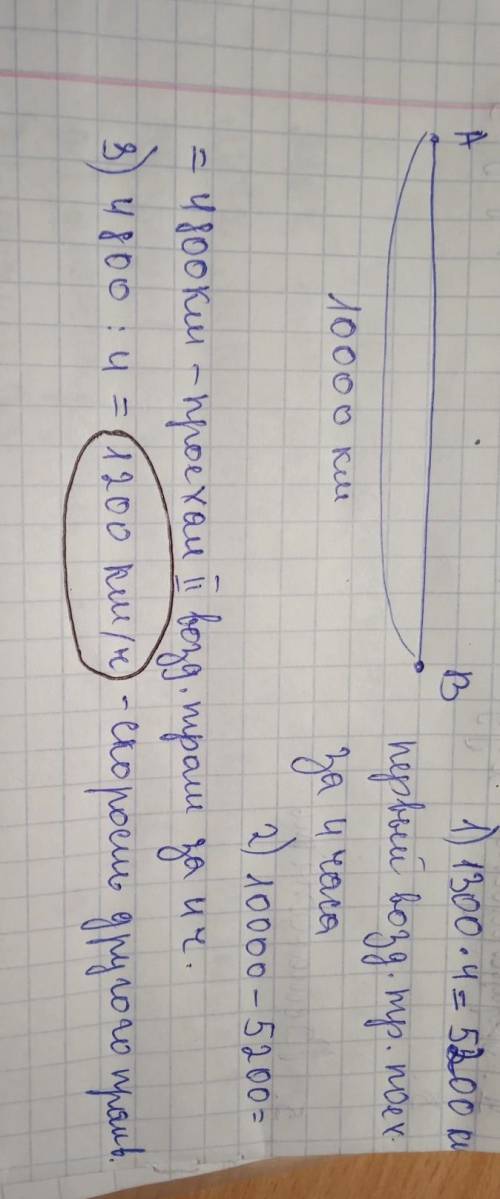 A B
10000 км
1) 1300 · 4 = 5200 к
первый возд. тр. поех.
за 4 часа
2) 10000 - 5200 =
= 4800 км - проехал II возд. трам за 4 ч.
3) 4800 : 4 = 1200 км/ч - скорость другого трамв.